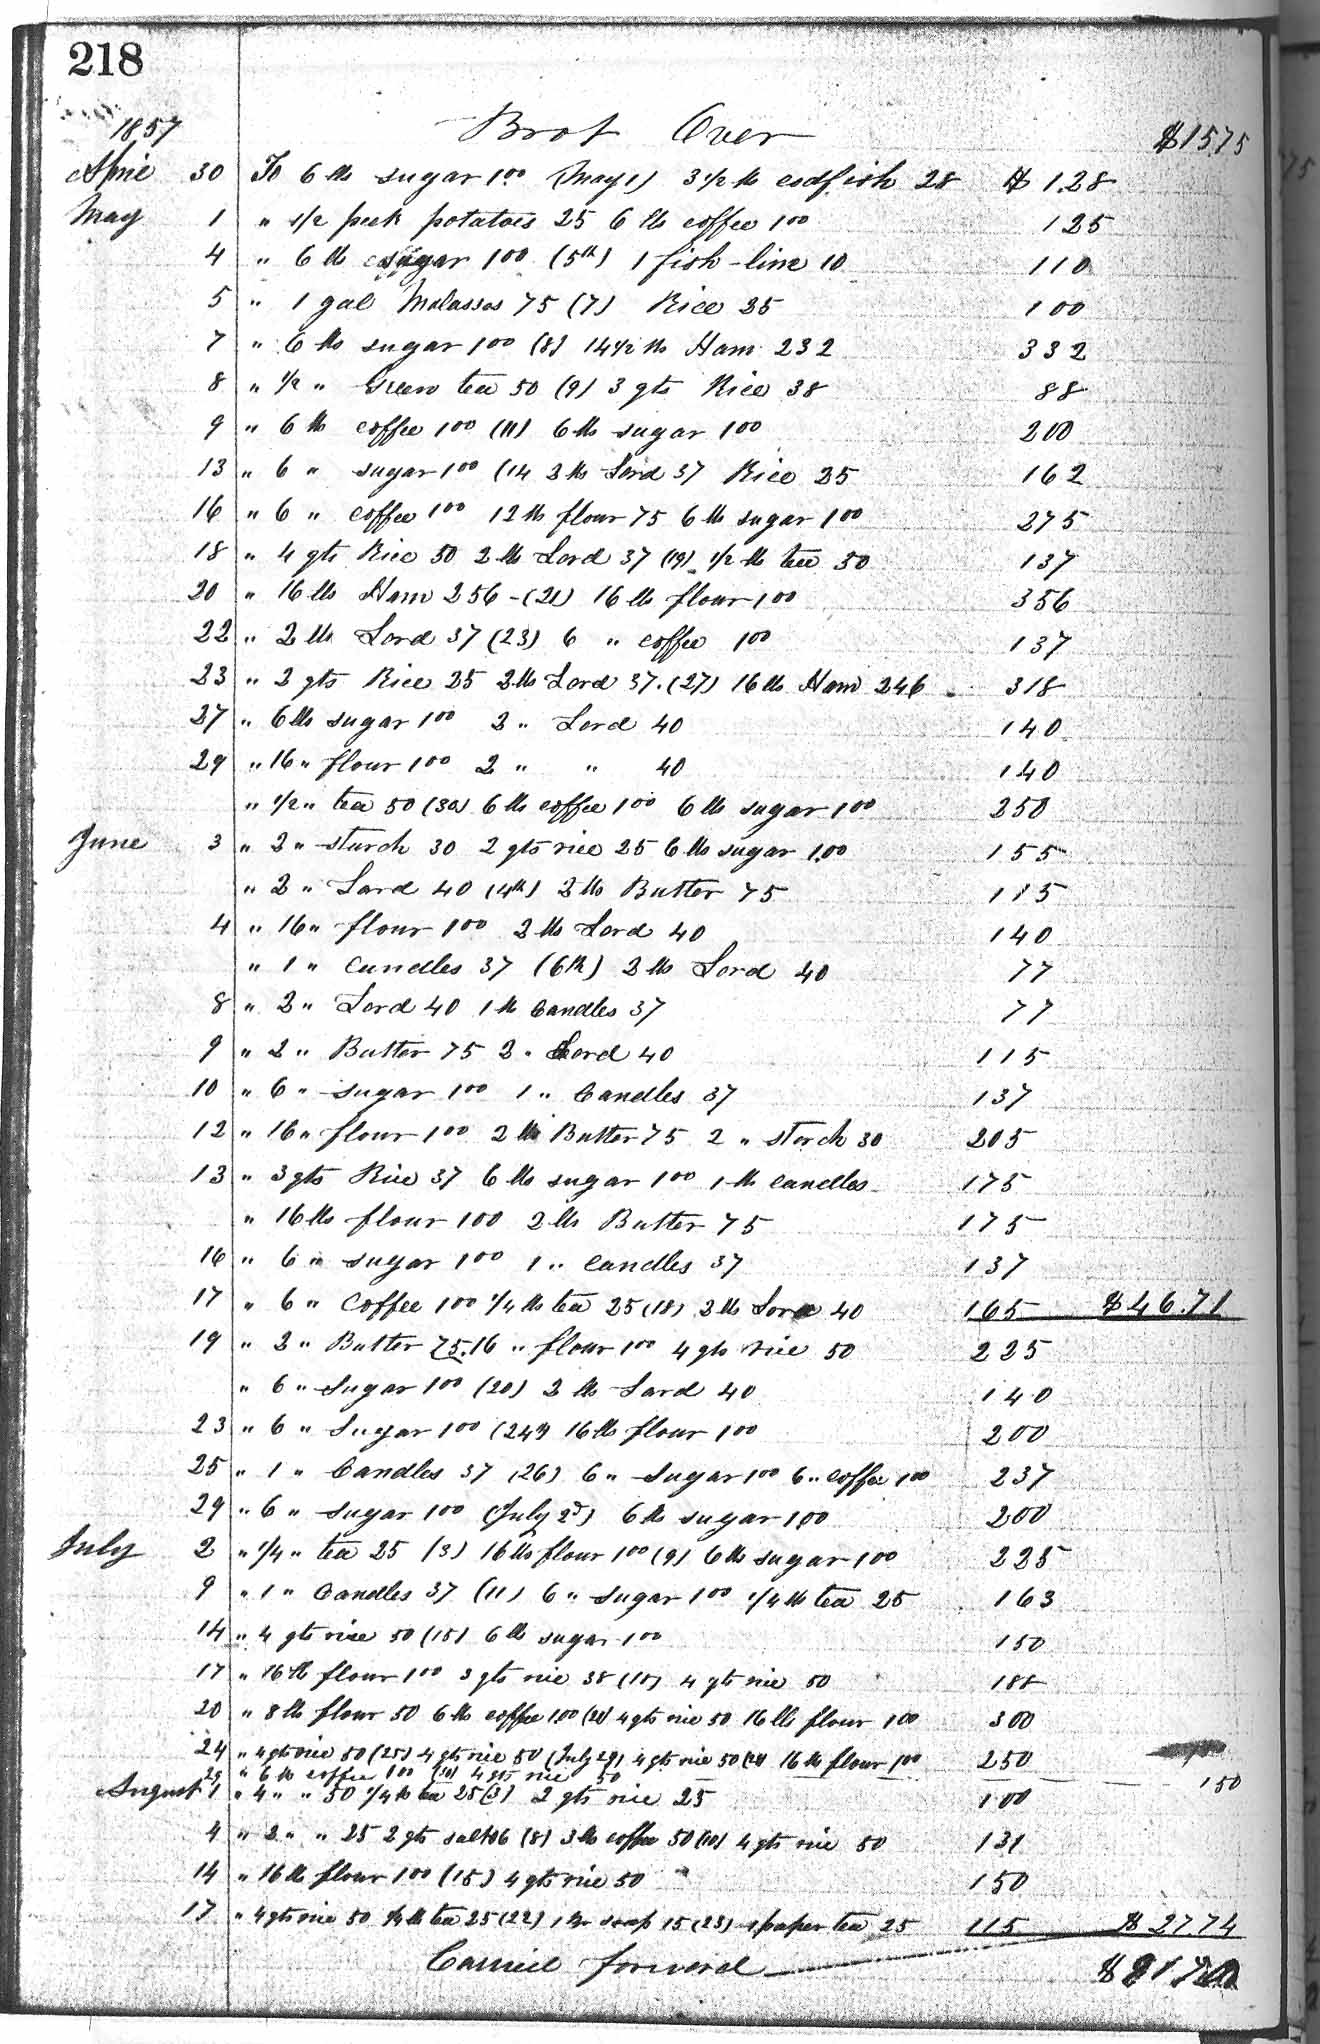 218
1857 Brot Over $1575
April 30 To 6 lb sugar 1oo (May 1) 3 1/2 lb codfish 28 $ 1.28
May 1 " 1/2 peck potatoes 25 6 lb coffee 1oo 125
4 " 6 lb sugar 1oo (5th) 1 fish-line 10 110
5 " 1 gal Molasses 75 (7) Rice 25 100
7 " 6 lb sugar 1oo (8) 14 1/2 lb Ham 232 332
8 " 1/2 " Green tea 50 (9) 3 qts Rice 38 88
9 " 6 lb coffee 1oo (11) 6 lb sugar 1oo 200
13 " 6 " sugar 1oo (14 2 lb Lard 37 Rice 25 162
16 " 6 " coffee 1oo 12 lb flour 75 6 lb sugar 1oo 275
18 " 4 qts Rice 50 2 lb Lard 37 (19) 1/2 lb tea 50 137
20 " 16 lb Ham 256 - (21) 16 lb flour 1oo 356
22 " 2 lb Lard 37 (23) 6 " coffee 1oo 137
23 " 2 qts Rice 25 2 lb Lard 37. (27) 16 lb Ham 246 318
27 " 6 lb sugar 1oo 2 " Lard 40 140
29 " 16 " flour 1oo 2 " " 40 140
" 1/2 " tea 50 (30) 6 lb coffee 1oo 6 lb sugar 1oo 250
June 3 " 2 " starch 30 2 qts rice 25 6 lb sugar 1.00 155
" 2 " Lard 40 (4th) 2 lb Butter 75 115
4 " 16 " flour 1oo 2 lb Lard 40 140
" 1 " candles 37 (6th) 2 lb Lard 40 77
8 " 2 " Lard 40 1 lb Candles 37 77
9 " 2 " Butter 75 2 " Lard 40 115
10 " 6 " sugar 1oo 1 " Candles 37 137
12 " 16 " flour 1oo 2 lb Butter 75 2 " starch 30 205
13 " 3 qts Rice 37 6 lb sugar 1oo 1 lb candles 175
" 16 lb flour 100 2 lb Butter 75 175
16 " 6 " sugar 1oo 1 " candles 37 137
17 " 6 " Coffee 100 1/4 lb tea 25 (18) 2 lb Lard 40 165 $46.71
19 " 2 " Butter 75. 16 " flour 1oo 4 qts rice 50 225
" 6 " Sugar 1oo (20) 2 lb Lard 40 140
23 " 6 " Sugar 1oo (24th) 16 lb flour 1oo 200
25 " 1 " Candles 37 (26) 6 " Sugar 1oo 6 " coffee 1oo 237
29 " 6 " sugar 100 (July 2d) 6 lb sugar 100 200
July 2 " 1/4 " tea 25 (3) 16 lb flour 1oo (9) 6 lb sugar 1oo 225
9 " 1 " Candles 37 (11) 6 " sugar 1oo 1/4 lb tea 25 163
14 " 4 qts rice 50 (15) 6 lb sugar 1oo 150
17 " 16 lb flour 1oo 3 qts rice 38 (18) 4 qts rice 50 188
20 " 8 lb flour 50 6 lb coffee 1.00 (21) 4 qts rice 50 16 lb flour 1oo 300
24 " 4 qts rice 50 (25) 4 qts rice 50 (July 29) 4 qts rice 50 16 lb flour 1oo 250
29 " 6 lb coffee 100 4 qts rice 50 150
August 1 " 4 " " 50 1/4 lb tea 25 (3) 2 qts rice 25 100
4 " 2 " " 25 2 qts salt 06 (8) 3 lb coffee 50 (10) 4 qts rice 50 131
14 " 16 lb flour 1oo (15) 4 qts rice 50 150
17 " 4 qts rice 50 1/4 lb tea 25 (22) 1 soap 15 (23) 1 paper tea 25 115 $ 27.74
Carried forward